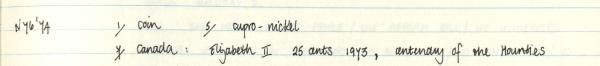 NY6'YA 1/ coin 5/ cupro-nickel
4/ Canada : Elizabeth II 25 cents 1973, centenary of the Mounties